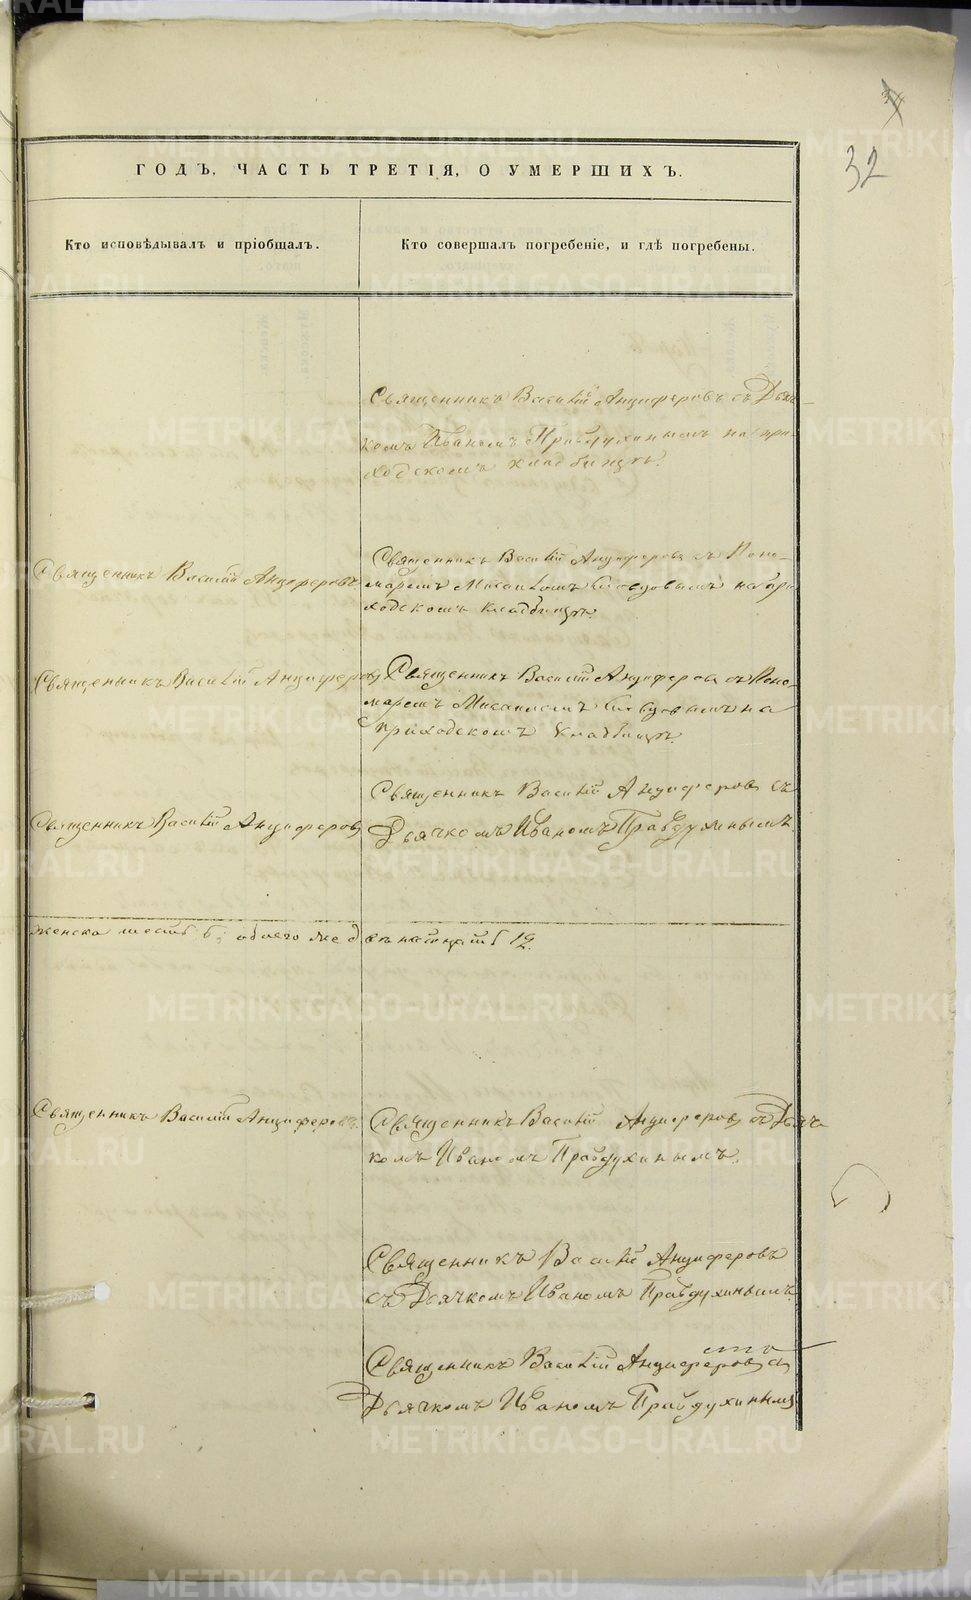 34
32
ГОДЪ, ЧАСТЬ ТРЕТІЯ, О УМЕРШИХЪ.
Кто исповѣдывалъ и пріобщалъ.
Кто совершалъ погребеніе, и гдѣ погребены.
Священникъ Василій Анциферовъ съ Дьяч-
комъ Иваномъ Правдухинымъ на при-
ходскомъ кладбищѣ.
Священникъ Василій Анциферовъ
Священникъ Василій Анциферовъ съ Поно-
маремъ Михаиломъ на при-
ходскомъ кладбищѣ.
Священникъ Василій Анциферовъ
Священникъ Василій Анциферовъ съ Поно-
маремъ Михаиломъ на
приходскомъ кладбищѣ.
Священникъ Василій Анциферовъ
Священникъ Василій Анциферовъ съ
Дьячкомъ Иваномъ Правдухинымъ.
женска шесть 6; обоего же двенатцать 12.
Священникъ Василій Анциферовъ.
Священникъ Василій Анциферовъ съ Дьяч-
комъ Иваномъ Правдухинымъ.
Священникъ Василій Анциферовъ
съ Дьячкомъ Иваномъ Правдухинымъ.
Священникъ Василій Анциферовъ съ
Дьячкомъ Иваномъ Правдухинымъ
METRIKI.GASO-URAL.RU